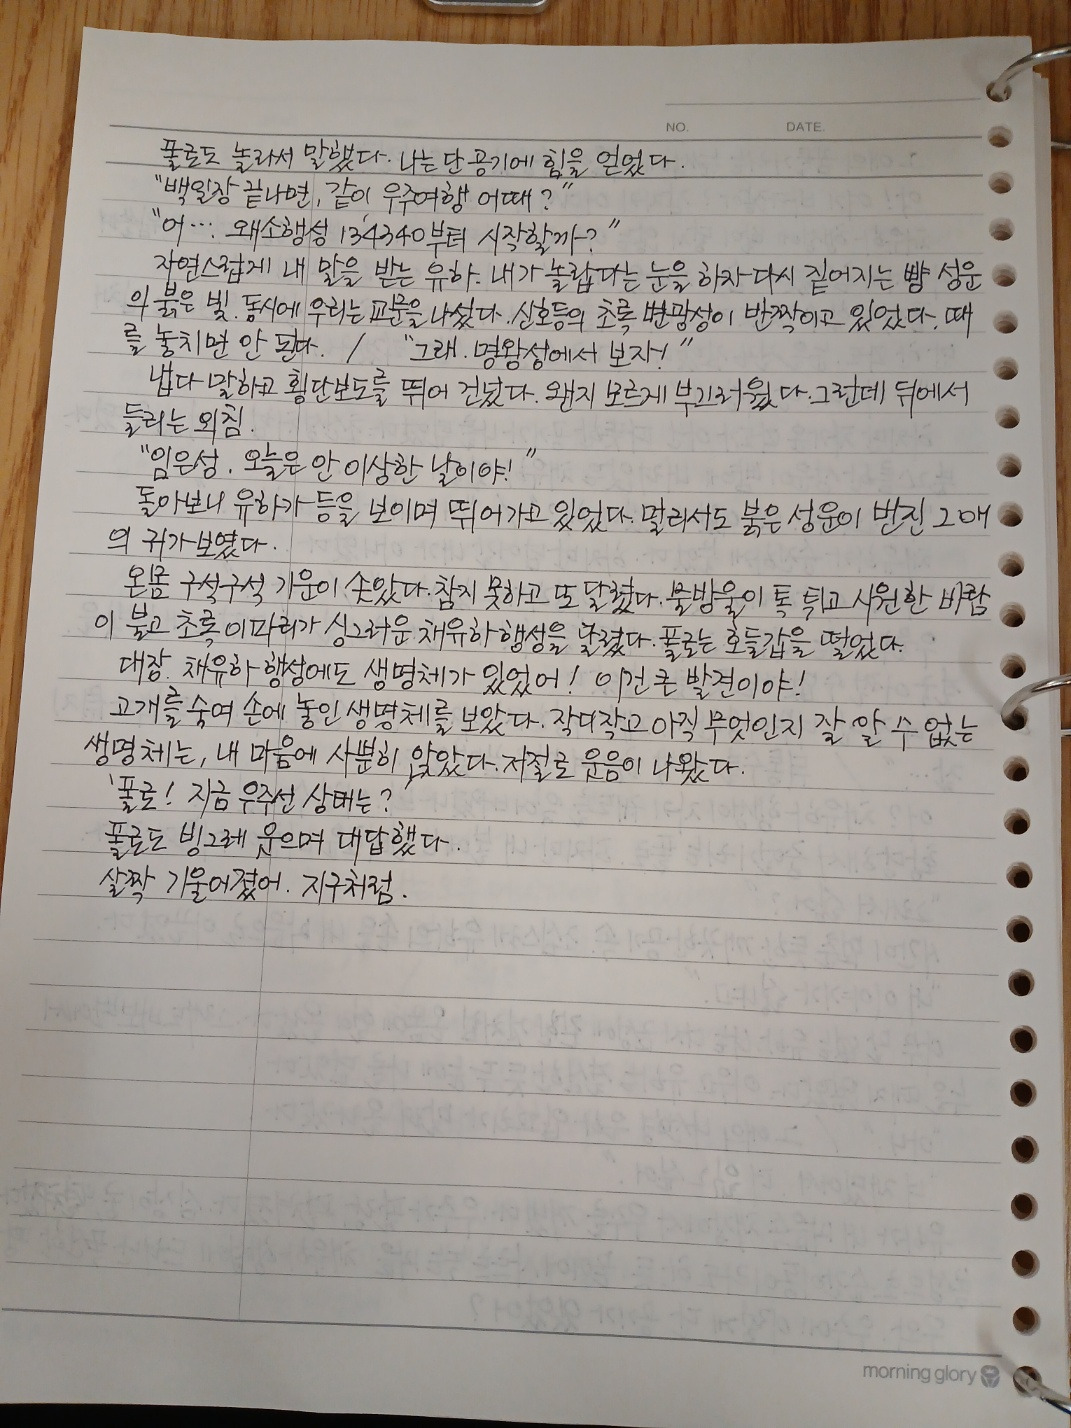 NO. DATE.
풀로도 놀라서 말했다. 나는 단 공기에 힘을 얻었다.
"백일장 끝나면, 같이 우주여행 어때?"
"어… 왜소행성 134340부터 시작할까?"
자연스럽게 내 말을 받는 유하. 내가 놀랍다는 눈을 하자 다시 짙어지는 뺨 성운
의 붉은 빛. 동시에 우리는 교문을 나섰다. 신호등의 초록 변광성이 반짝이고 있었다. 때
를 놓치면 안 된다. / "그래. 명왕성에서 보자!"
냅다 말하고 횡단보도를 뛰어 건넜다. 왠지 모르게 부끄러웠다. 그런데 뒤에서
들리는 외침.
"임은성. 오늘은 안 이상한 날이야!"
돌아보니 유하가 등을 보이며 뛰어가고 있었다. 멀리서도 붉은 성운이 번진 그애
의 귀가 보였다.
온몸 구석구석 기운이 솟았다. 참지 못하고 또 달렸다. 물방울이 톡 튀고 시원한 바람
이 불고 초록 이파리가 싱그러운 채유하 행성을 달렸다. 풀로는 호들갑을 떨었다.
대장. 채유하 행성에도 생명체가 있었어! 이건 큰 발견이야!
고개를 숙여 손에 놓인 생명체를 보았다. 작디작고 아직 무엇인지 잘 알 수 없는
생명체는, 내 마음에 사뿐히 앉았다. 저절로 웃음이 나왔다.
'풀로! 지금 우주선 상태는?'
풀로도 빙그레 웃으며 대답했다.
살짝 기울어졌어. 지구처럼.
morning glory